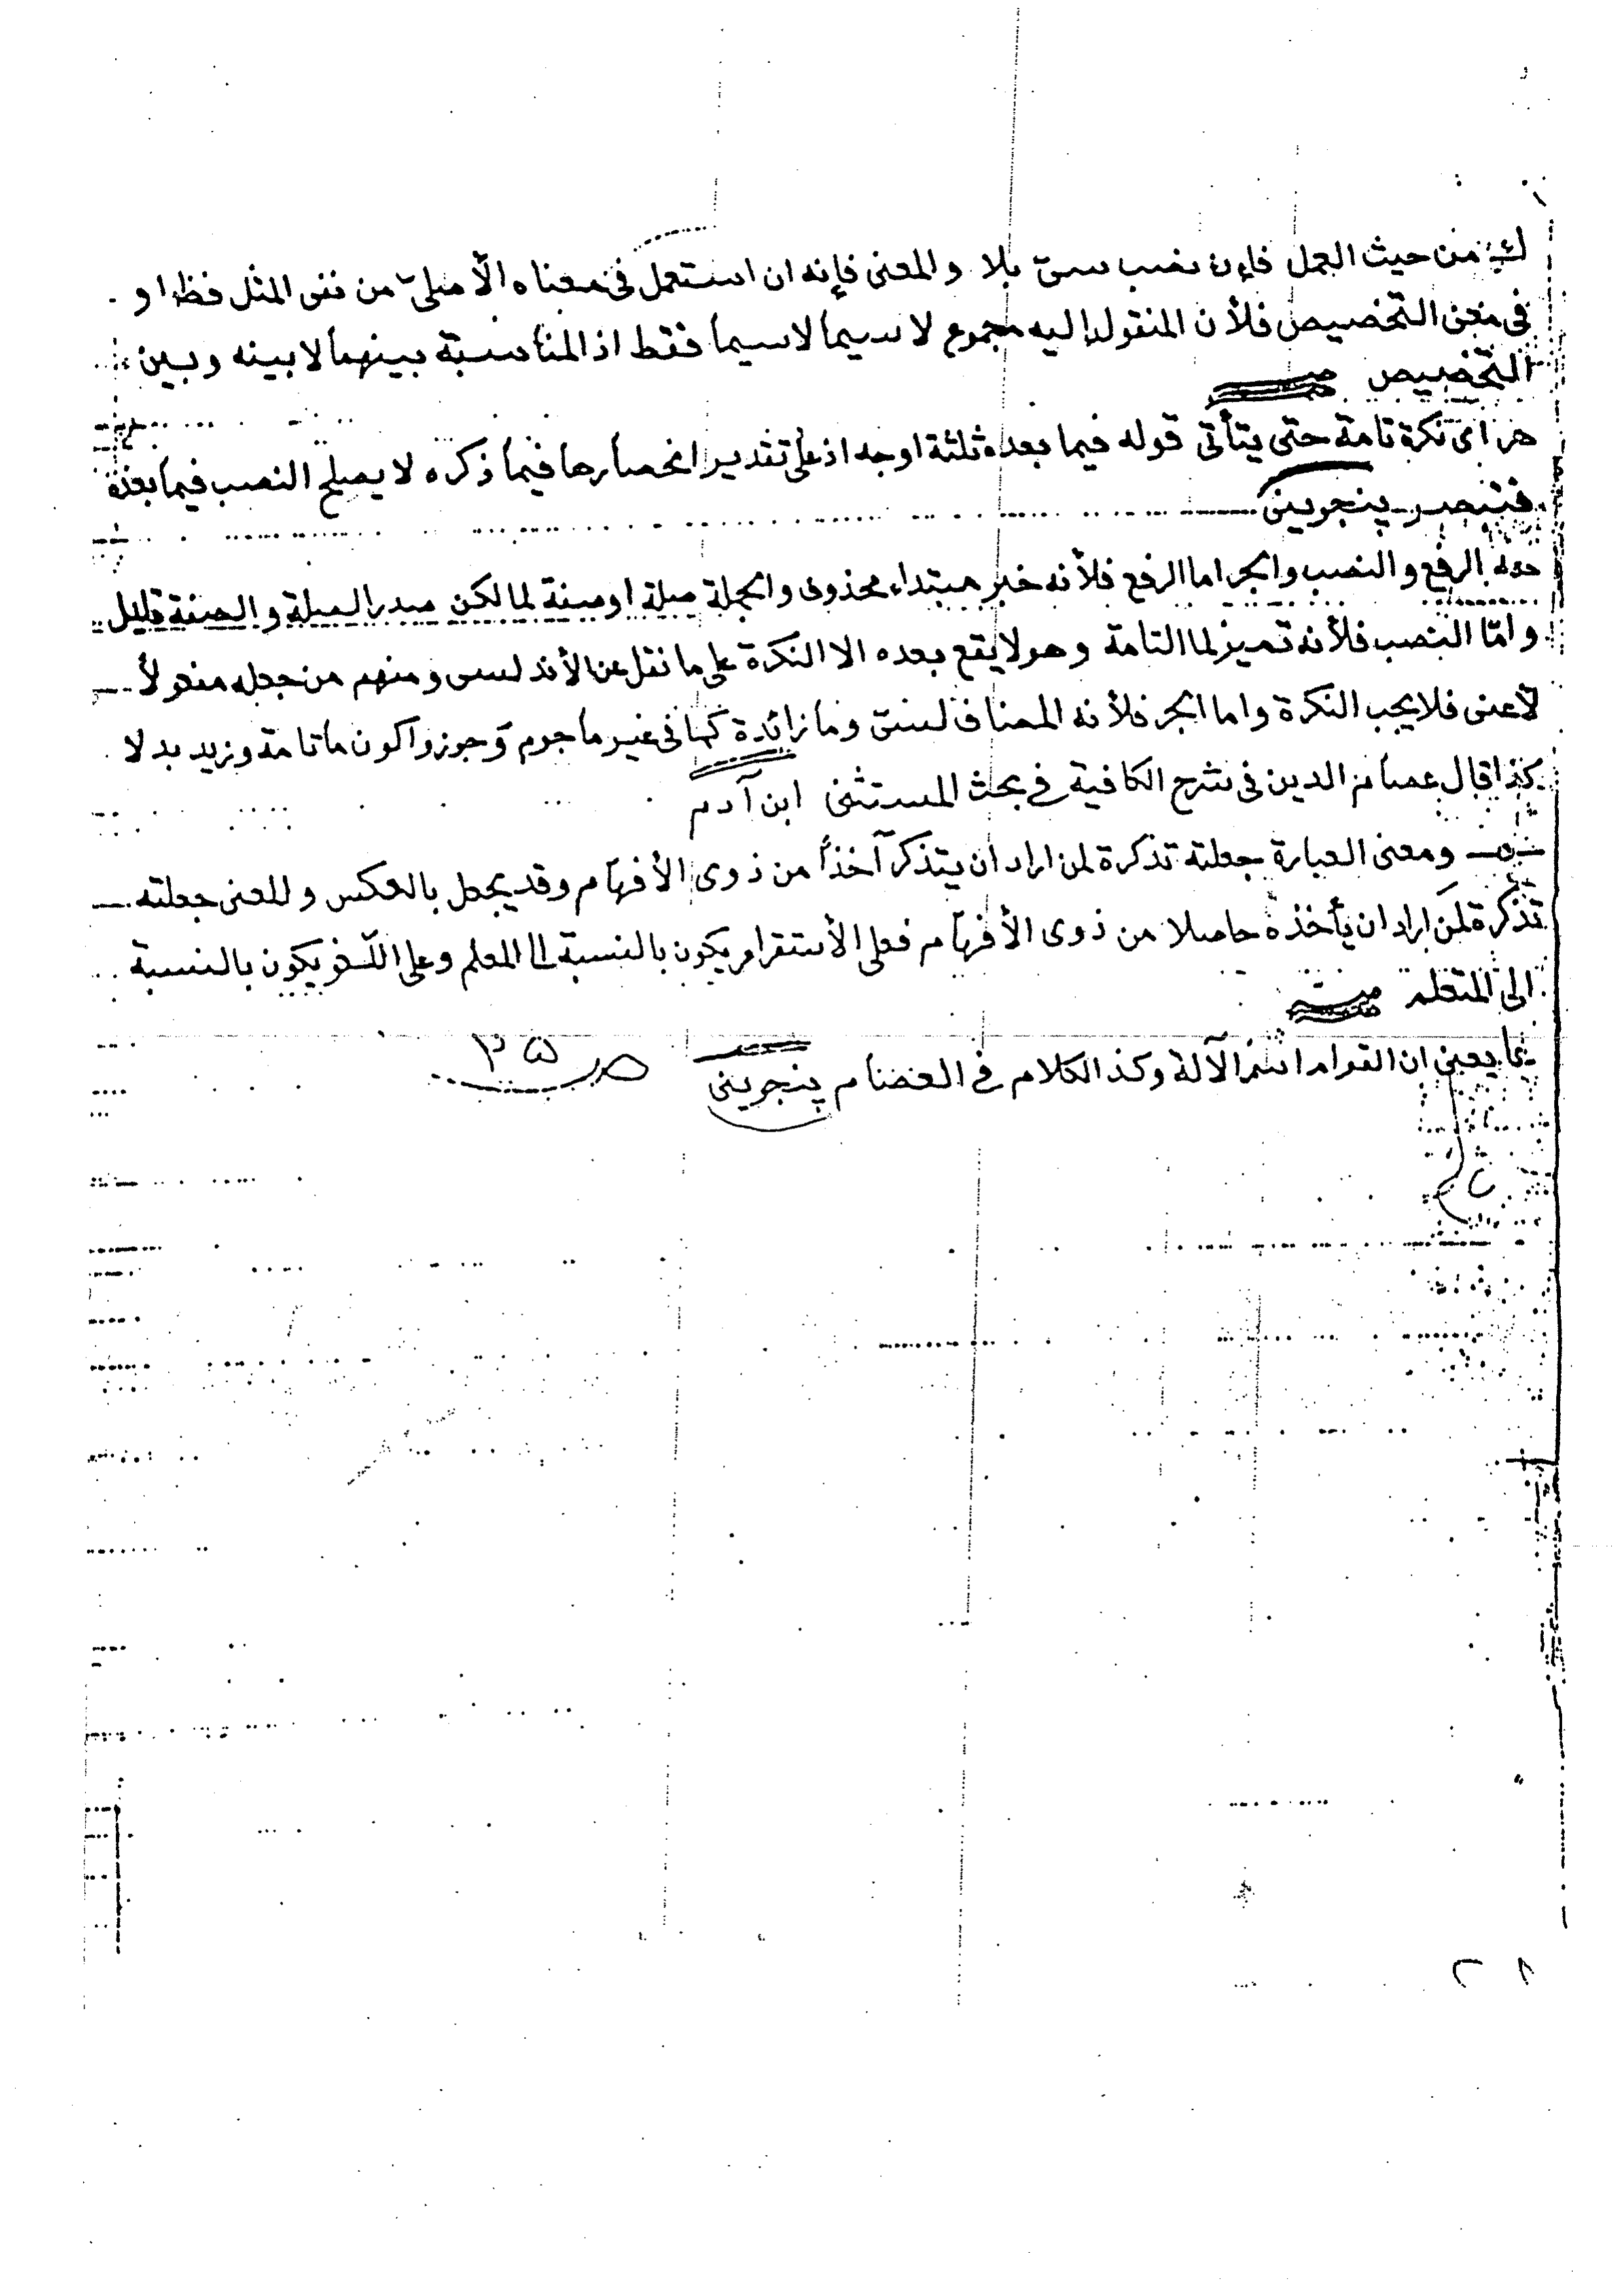 من حيث العمل فإن نصب سىّ بلا والمعنى فإنه ان استعمل فى معناه الأصلىّ من نفى المثل فظ او
فى معنى التخصيص فلأن المنقول إليه مجموع لا سيما لا سيما فقط اذ المناسبة بينهما لا بينه وبين
التخصيص
اى نكرة تامة حتى يتأتى قوله فيما بعده ثلثة اوجه اذ على تقدير انحصارها فيما ذكره لا يصلح النصب فيما بعده
فتبصر پنجوينى
الرفع و النصب والجر اما الرفع فلأنه خبر مبتداء محذوف والجملة صلة او صفة لما لكن صدر الصلة و الصفة قليل
وامّا النصب فلأنه تميز لما التامة وهو لا يقع بعده الا النكرة على ما نقل عن الأندلسى ومنهم من جعله مفعولاً
لأعنى فلا يجب النكرة واما الجر فلأنه المضاف لسىّ وما زائدة كما فى غير ما جرم وجوزوا كون ما تامة وزيد بدلا
كذا قال عصام الدين فى شرح الكافية فى بحث المستثنى ابن آدم
ومعنى العبارة جعلته تذكرة لمن اراد ان يتذكر آخذاً من ذوى الأفهام وقد يجعل بالعكس والمعنى جعلته
تذكرة لمن اراد ان يأخذه حاصلا من ذوى الأفهام فعلى الأستقرار يكون بالنسبة الى المعلم وعلى اللّغو يكون بالنسبة
الى المتعلم
يعنى ان القوام اسم الآلة وكذ الكلام فى العصام پنجوينى صـ ٣٥